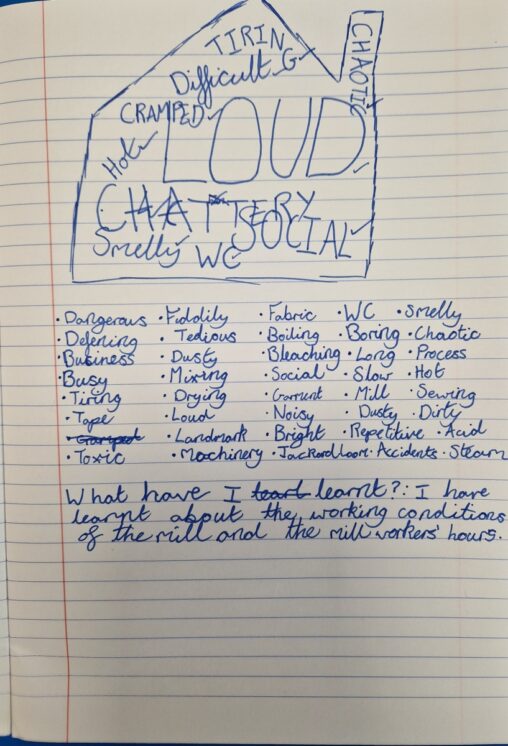 TIRING
Difficult
CHAOTIC
CRAMPED
LOUD
Hot
CHATTERY
SOCIAL
Smelly
WC
· Dangerous · Fiddlily · Fabric · WC · Smelly
· Defening · Tedious · Boiling · Boring · Chaotic
· Business · Dusty · Bleaching · Long · Process
· Busy · Mixing · Social · Slow · Hot
· Tiring · Drying · Garment · Mill · Sewing
· Tape · Loud · Noisy · Dusty · Dirty
· Landmark · Bright · Repetitive · Acid
· Toxic · Machinery · Jackord loom · Accidents · Steam
What have I learnt?: I have
learnt about the working conditions
of the mill and the mill workers' hours.